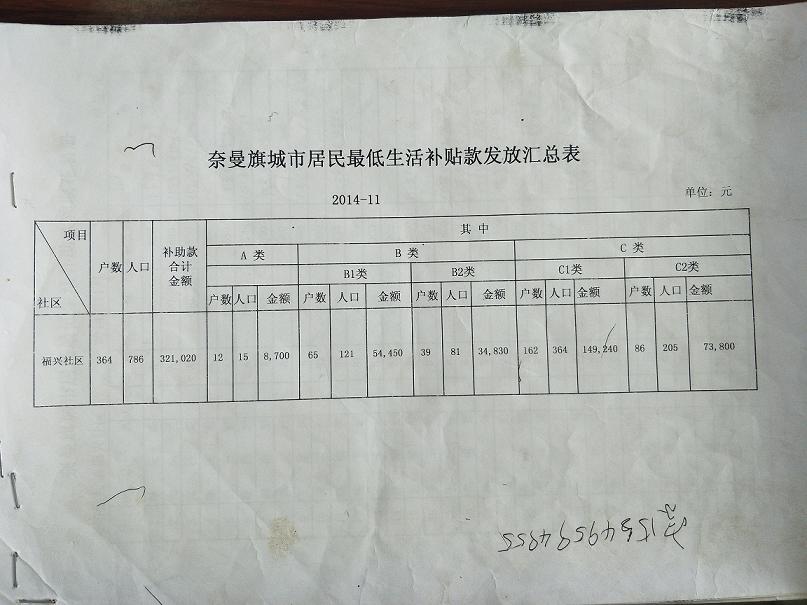 奈曼旗城市居民最低生活补贴款发放汇总表
2014-11
单位：元
项目 社区 户数 人口 补助款合计金额 其中
A 类 B 类 C 类
B1类 B2类 C1类 C2类
户数 人口 金额 户数 人口 金额 户数 人口 金额 户数 人口 金额 户数 人口 金额
福兴社区 364 786 321,020 12 15 8,700 65 121 54,450 39 81 34,830 162 364 149,240 86 205 73,800